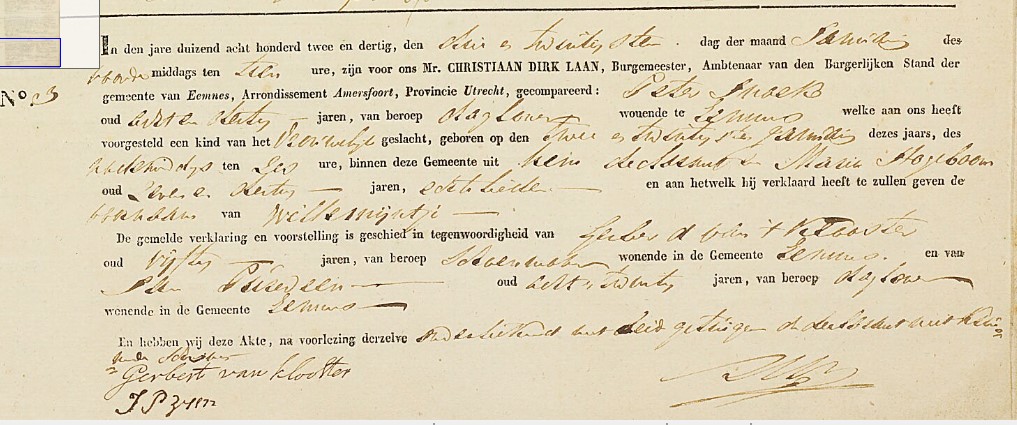 In den jare duizend acht honderd twee en dertig, den drie en twintigsten dag der maand Januarij des
voorde middags ten tien ure, zijn voor ons Mr. CHRISTIAAN DIRK LAAN, Burgemeester, Ambtenaar van den Burgerlijken Stand der
No 3 gemeente van Eemnes, Arrondissement Amersfoort, Provincie Utrecht, gecompareerd: Peter Hoek
oud acht en dertig jaren, van beroep daglooner wonende te Eemnes welke aan ons heeft
voorgesteld een kind van het Vrouwelijk geslacht, geboren op den twee en twintigsten Januarij dezes jaars, des
ten zes ure, binnen deze Gemeente uit zijne Maria Hogeboom
oud zeven en dertig jaren, echtelieden en aan hetwelk hij verklaard heeft te zullen geven de
voornaam van Willemijntje
De gemelde verklaring en voorstelling is geschied in tegenwoordigheid van Gerberd van t Klooster
oud vijftig jaren, van beroep Schoenmaker wonende in de Gemeente Eemnes. en van
Jan oud acht en twintig jaren, van beroep daglooner
wonende in de Gemeente Eemnes
En hebben wij deze Akte, na voorlezing derzelve onderteekend met beid getuigen
Gerbert van klooster
J P